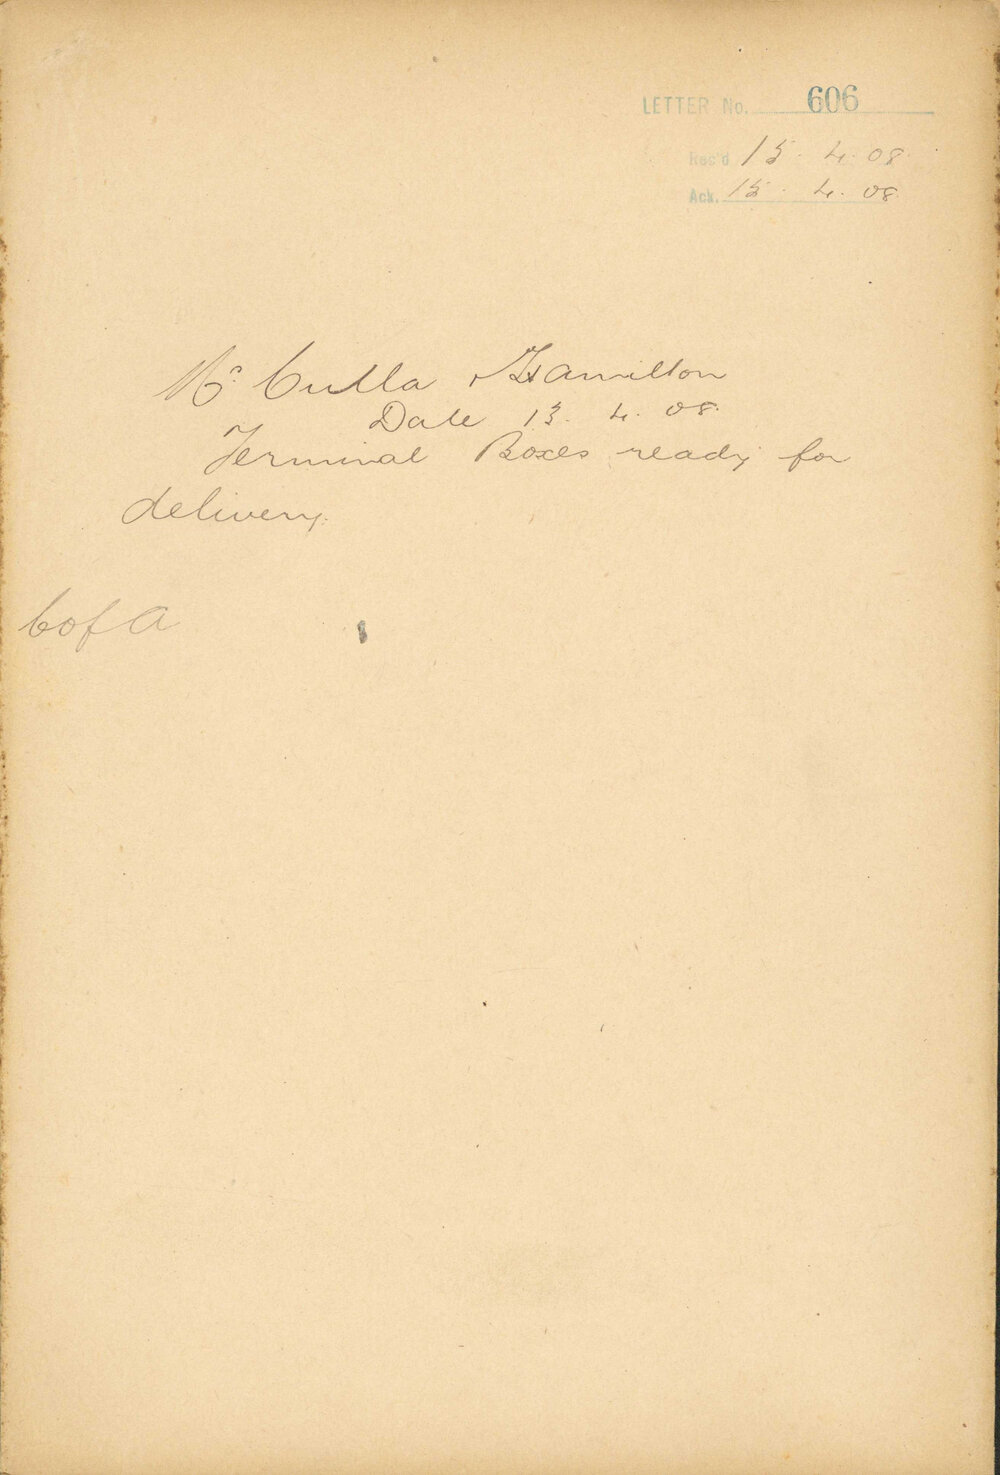 LETTER No. 606
Rec'd 15. 4. 08.
Ack. 15. 4. 08.
Mc Culla Hamilton
Date 13. 4. 08.
Terminal Boxes ready for
delivery.
C of A